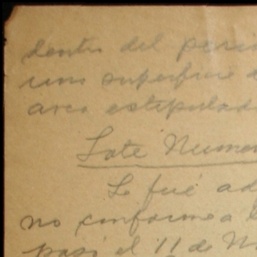 dentro del perio
una superficie d
area estipulada
Lote Numer
Le fué ad
no conforme a l
pasó el 11 de M